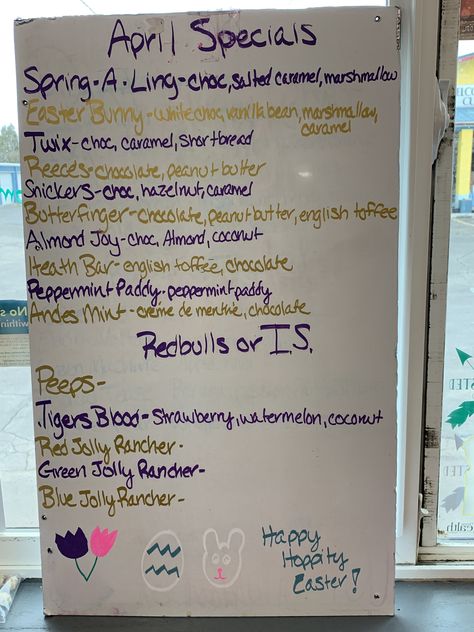 April Specials
Spring-A-Ling-choc, salted caramel, marshmallow
Easter Bunny-white choc, vanilla bean, marshmallow,
caramel
Twix-choc, caramel, shortbread
Reece's-chocolate, peanut butter
Snickers-choc, hazelnut, caramel
Butterfinger-chocolate, peanut butter, english toffee
Almond Joy-choc, Almond, coconut
Heath Bar-english toffee, chocolate
Peppermint Paddy-peppermint paddy
Andes Mint-creme de menthe, chocolate
Redbulls or I.S.
Peeps-
Tigers Blood-Strawberry, watermelon, coconut
Red Jolly Rancher-
Green Jolly Rancher-
Blue Jolly Rancher-
Happy
Hoppity
Easter!
No S
within